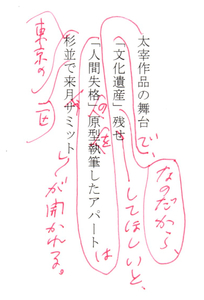 太宰作品の舞台
「文化遺産」残せ
「人間失格」原型執筆したアパート
杉並で来月サミット
で、
なのだから
してほしいと、
の
を
は
東京の
区
が開かれる。